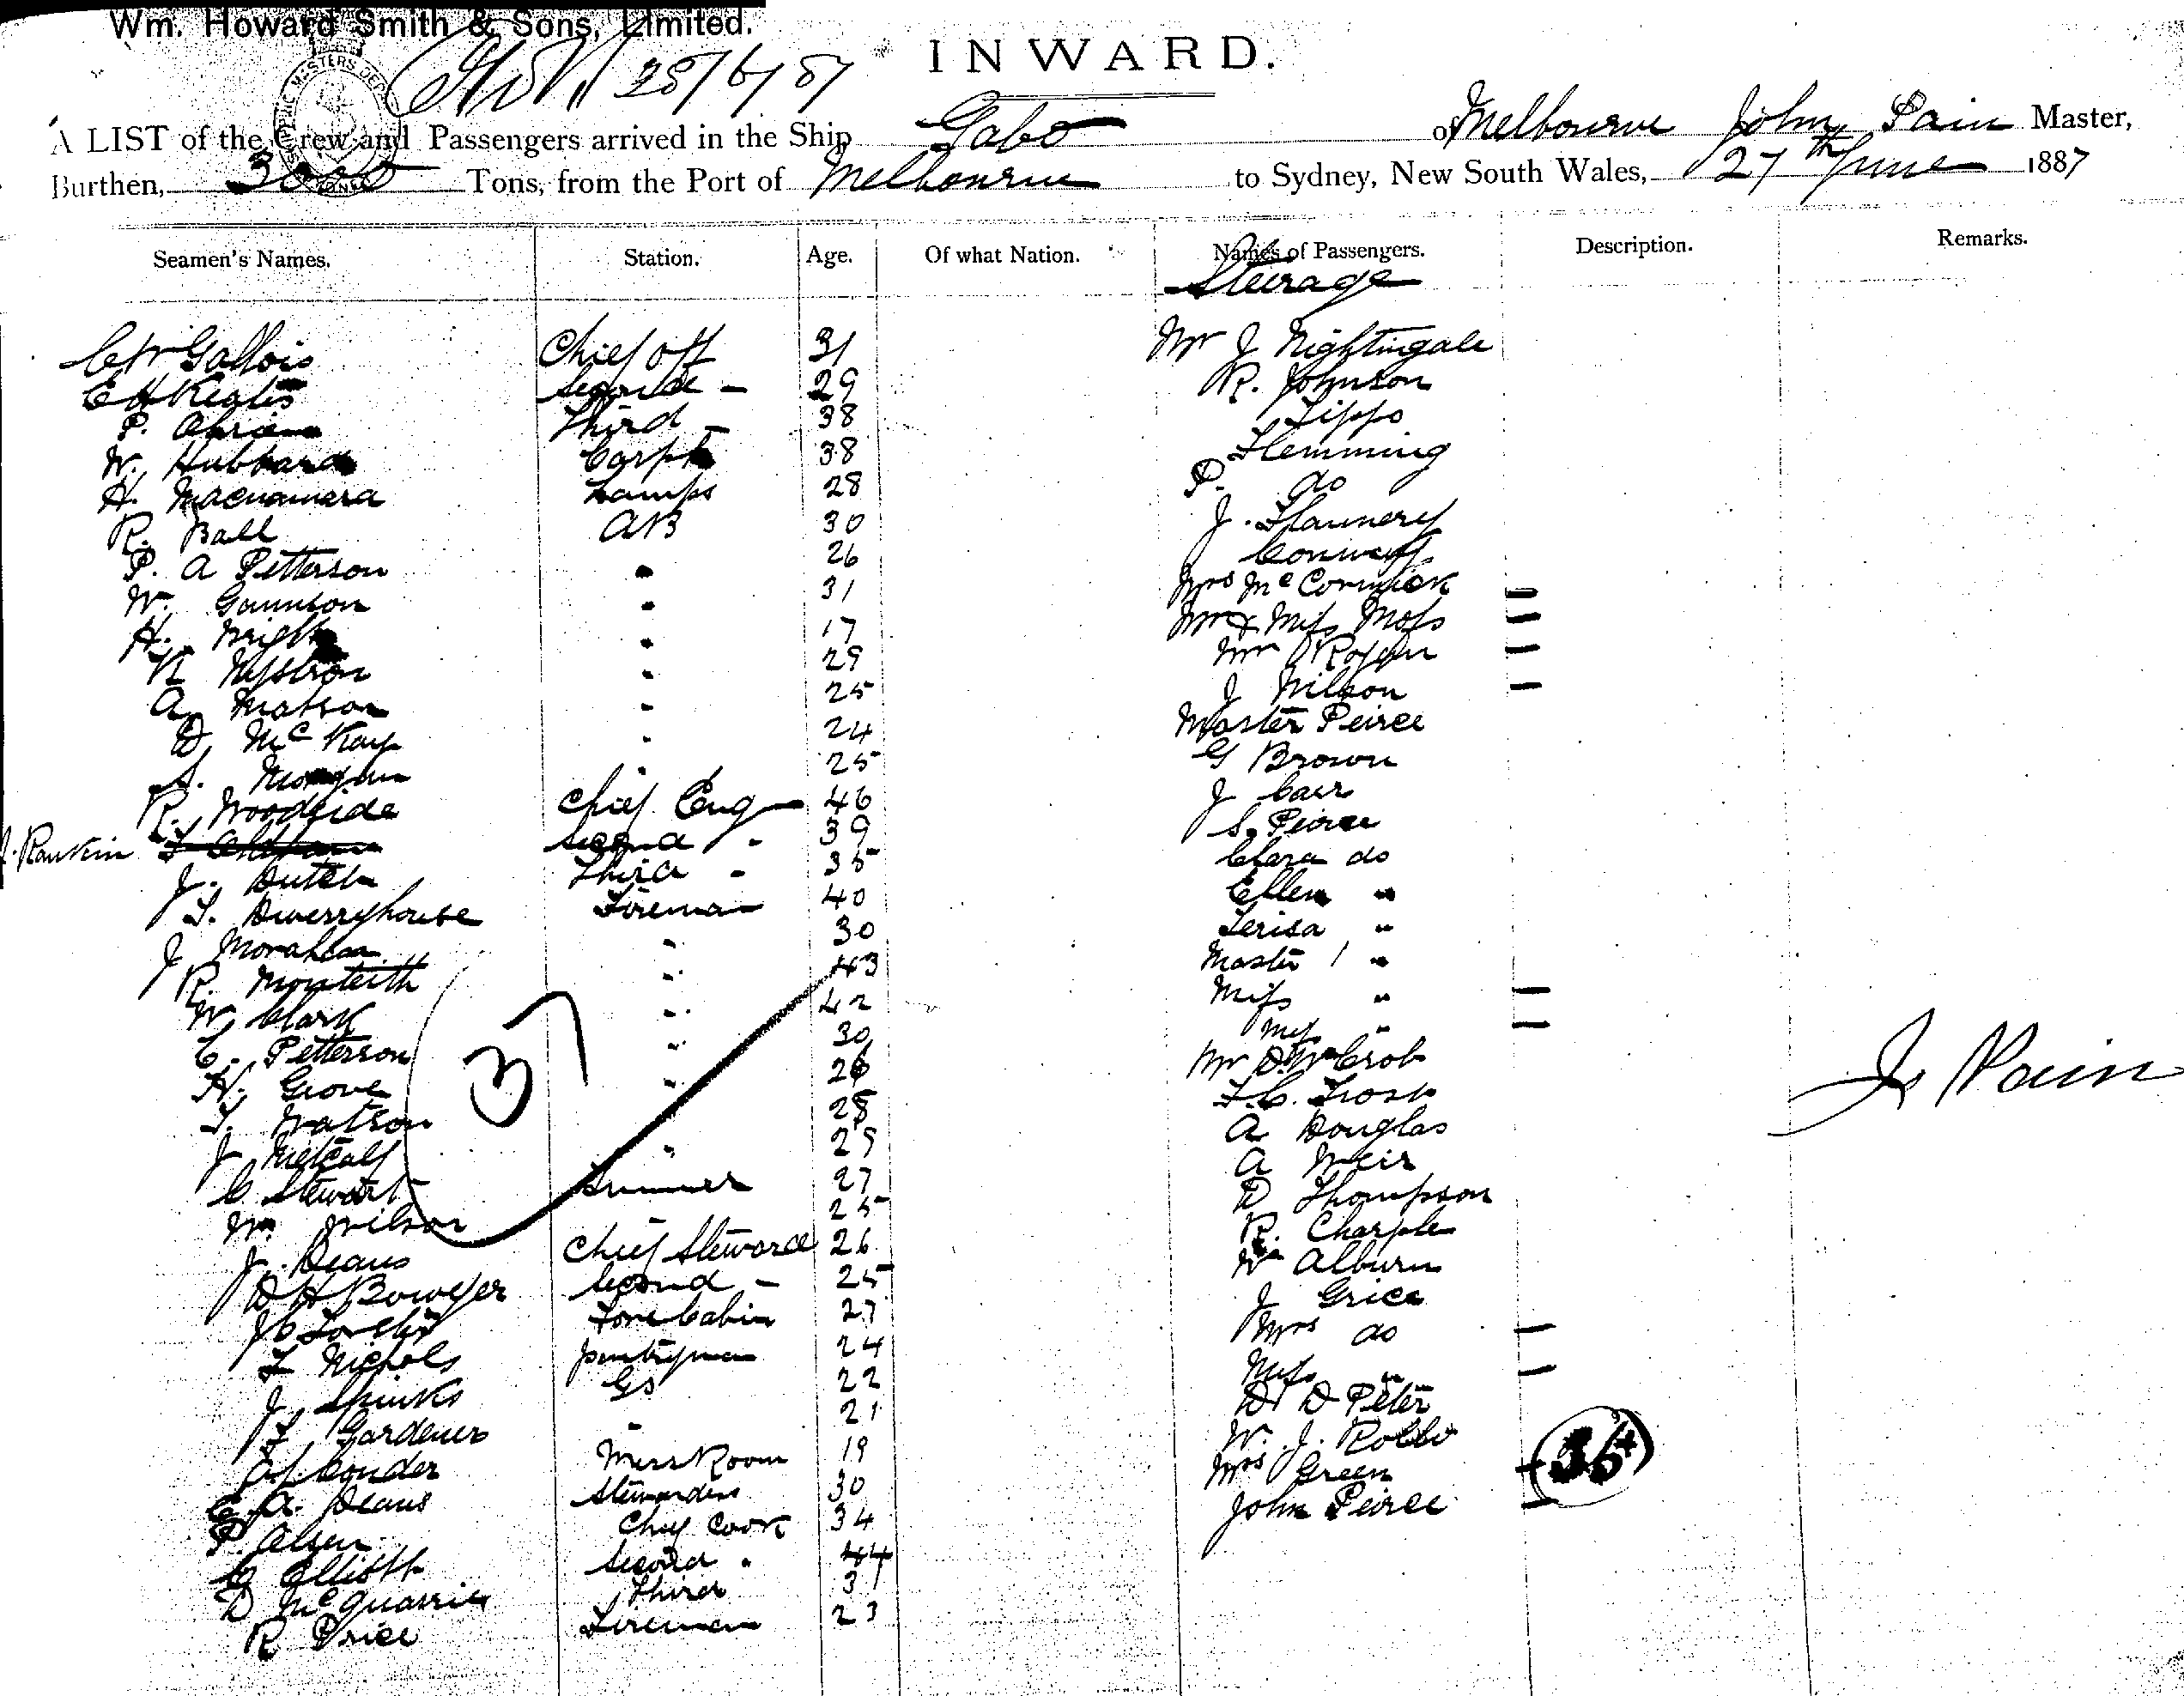 Wm. Howard Smith & Sons, Limited.
28/6/87
INWARD.
A LIST of the Crew and Passengers arrived in the Ship Gabo of Melbourne John Pain Master,
Burthen, Tons, from the Port of Melbourne to Sydney, New South Wales, 27th June 1887
Seamen's Names. Station. Age. Of what Nation. Names of Passengers. Description. Remarks.
Steerage
Gallois Chief Off 31 Mr J Nightingale
E H Keates Second - 29 R. Johnson
P. Third - 38 Tippo
W. Hubbard Carpt 38 Flemming
H. Macnamara Lamps 28 P. do
R. Ball AB 30 J. Flannery
P. A Petterson " 26 Conway
W. Gaunson " 31 Mrs McCormick -
H. Wright " 17 Mr & Miss Moss -
N Nystrom " 29 Mr -
A. Matson " 25 J Wilson -
D McKay " 24 Master Peirce
S. Morgan " 25 G Brown
R. Woodside Chief Eng 46 J Cair
J. Rankin Second " 39 S. Peirce
J. Dutch Third - 35 Clara do
T. Dwerryhouse Fireman 40 Ellen "
J Monahan " 30 Terisa "
R. Monteith " 43 Master 1 "
W Clark " 42 Miss " -
C. Petterson " 30 Miss " -
H. Grove " 26 Mr D. McCrob
T. Watson 28 F.C. Frost
J Metcalf " 29 A Douglas
C Stewart Trimmer 27 A Weir
Wm Wilson 25 D Thompson
J. Deans Chief Steward 26 R. Charple
D H Bowyer Second - 25 W Alburn
J C Fore Cabin 27 J Grice
F Nichols pantryman 24 Mrs do -
J. Spinks GS 22 Miss " -
F Gardener - 21 D D Peter
A J. Conder Mess Room 19 W. J. Rollo
E. A. Deans Stewardess 30 Mrs Green -
P. Olsen Chief Cook 34 John Peirce -
G Elliott Second " 44
D McQuarrie Third 31
R Price Fireman 23
37
36
J. Pain